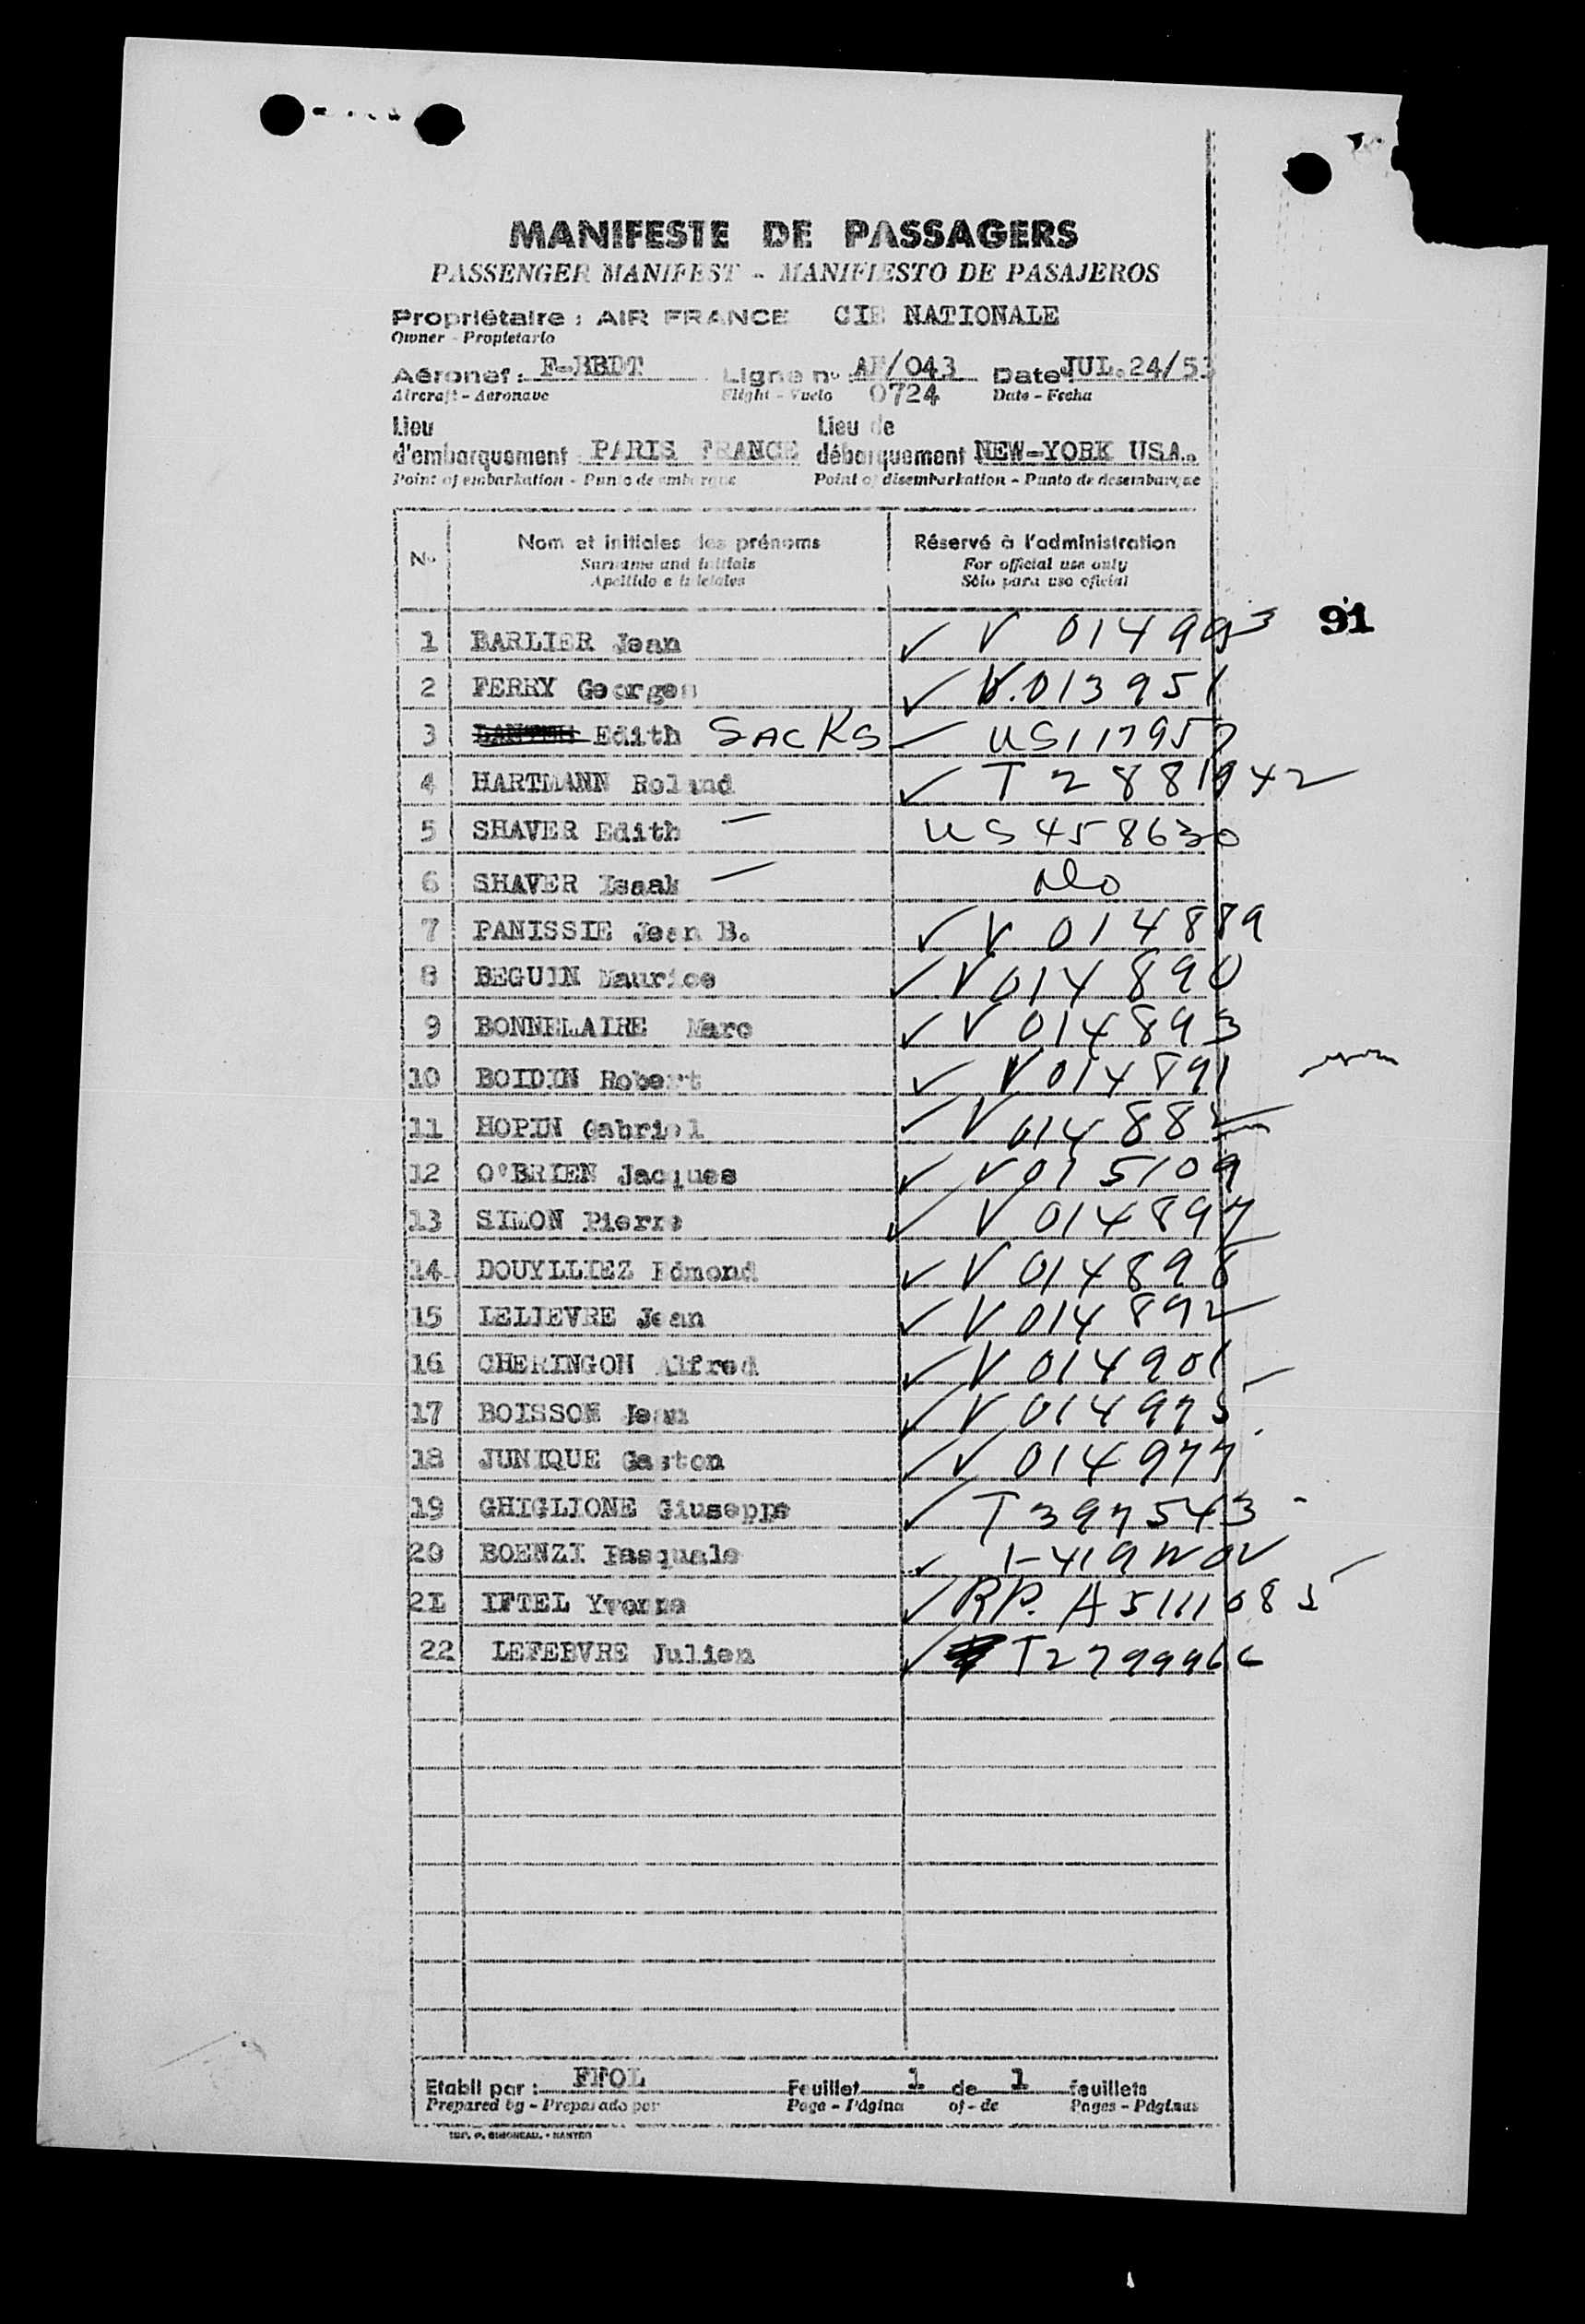 MANIFESTE DE PASSAGERS
PASSENGER MANIFEST - MANIFIESTO DE PASAJEROS
Propriétaire : AIR FRANCE CIE NATIONALE
Owner - Propietario
Aéronef : F-BBDT Ligne nº AF/043 Date : JUL.24/53
Aircraft - Aeronave Flight - Vuelo 0724 Date - Fecha
Lieu Lieu de
d'embarquement PARIS FRANCE débarquement NEW-YORK USA.
Point of embarkation - Punto de embarque Point of disembarkation - Punto de desembarque
Nº Nom et initiales des prénoms Réservé à l'administration
Surname and initials For official use only
Apellido e iniciales Sólo para uso oficial
91
1 BARLIER Jean ✓ V 014993
2 FERRY Georges ✓ V.013951
3 Edith SACKS US117957
4 HARTMANN Roland ✓ T 2881942
5 SHAVER Edith — US458630
6 SHAVER Isaak — do
7 PANISSIE Jean B. ✓ V 014889
8 BEGUIN Maurice ✓ V014890
9 BONNELAIRE Marc ✓ V 014893
10 BOIDIN Robert ✓ V014891
11 HOPIN Gabriel ✓ V 01488
12 O'BRIEN Jacques ✓ V015109
13 SIMON Pierre ✓ V 014897
14 DOUYLLIEZ Edmond ✓ V 014898
15 LELIEVRE Jean ✓ V 014892
16 CHERINGOH Alfred ✓ V 014901
17 BOISSON Jean ✓ V 014975
18 JUNIQUE Gaston ✓ V 014977
19 GHIGLIONE Giuseppe ✓ T 397543
20 BOENZI Pasquale ✓ 1-419
21 IFTEL Yvonne ✓ RP. A5111085
22 LEFEBVRE Julien ✓ T2799966
Etabli par : FNOL Feuillet 1 de 1 feuillets
Prepared by - Preparado por Page - Página of - de Pages - Páginas
IMP. P. SIMONEAU. - NANTES